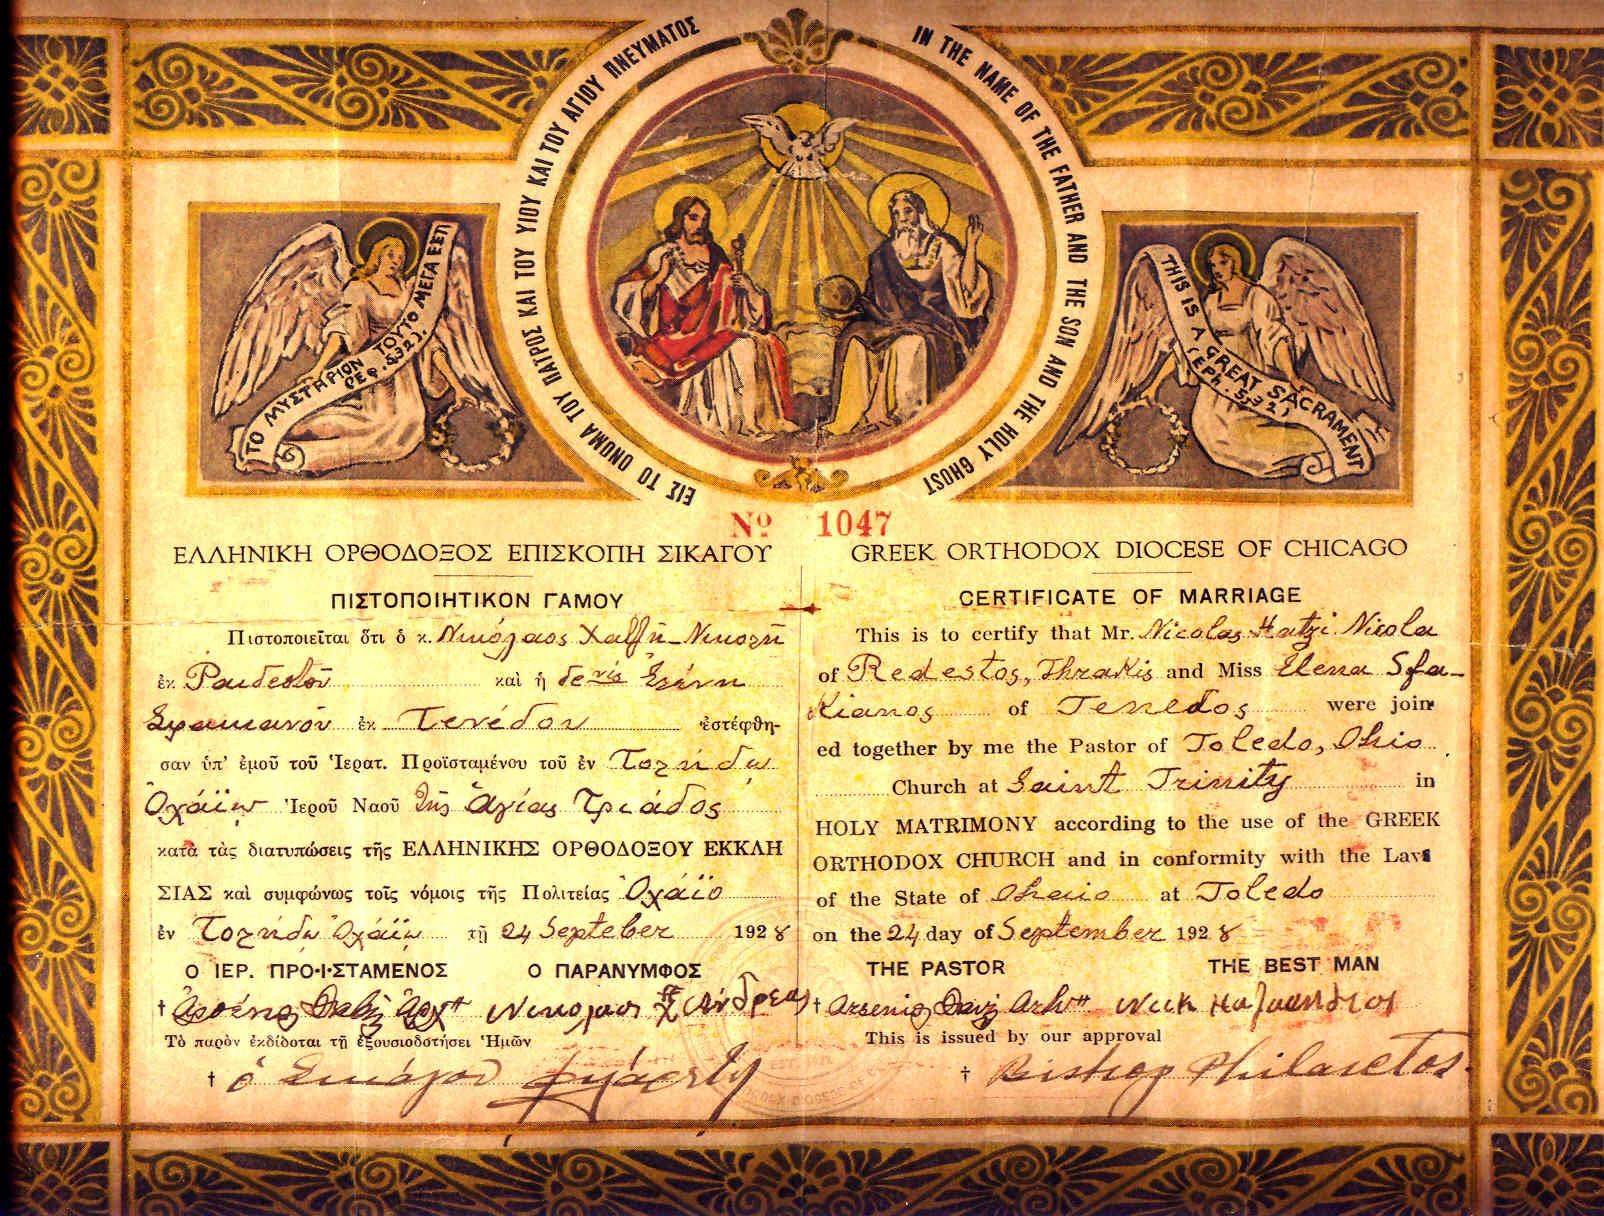 ΕΙΣ ΤΟ ΟΝΟΜΑ ΤΟΥ ΠΑΤΡΟΣ ΚΑΙ ΤΟΥ ΥΙΟΥ ΚΑΙ ΤΟΥ ΑΓΙΟΥ ΠΝΕΥΜΑΤΟΣ
IN THE NAME OF THE FATHER AND THE SON AND THE HOLY GHOST
ΤΟ ΜΥΣΤΗΡΙΟΝ ΤΟΥΤΟ ΜΕΓΑ ΕΣΤΙ
(ΕΦ. 5,32).
THIS IS A GREAT SACRAMENT
(EPH. 5,32)
Nº 1047
ΕΛΛΗΝΙΚΗ ΟΡΘΟΔΟΞΟΣ ΕΠΙΣΚΟΠΗ ΣΙΚΑΓΟΥ
ΠΙΣΤΟΠΟΙΗΤΙΚΟΝ ΓΑΜΟΥ
Πιστοποιεῖται ὅτι ὁ κ. Νικόλαος Χατζῆ-Νικολῆ
ἐκ Ραιδεστοῦ καὶ ἡ δενὶς Ἑλένη
Σφακιανοῦ ἐκ Τενέδου ἐστέφθη-
σαν ὑπ' ἐμοῦ τοῦ Ἱερατ. Προϊσταμένου τοῦ ἐν Τολήδω
Ὀχάϊω Ἱεροῦ Ναοῦ τῆς Ἁγίας Τριάδος
κατὰ τὰς διατυπώσεις τῆς ΕΛΛΗΝΙΚΗΣ ΟΡΘΟΔΟΞΟΥ ΕΚΚΛΗ
ΣΙΑΣ καὶ συμφώνως τοῖς νόμοις τῆς Πολιτείας Ὀχάϊο
ἐν Τολήδω Ὀχάϊω τῇ 24 Septeber 1928
Ο ΙΕΡ. ΠΡΟ·Ι·ΣΤΑΜΕΝΟΣ Ο ΠΑΡΑΝΥΜΦΟΣ
† Ἀρσένιος Ἀρχ Νικολαοσ Χ Ἀνδρέας
Τὸ παρὸν ἐκδίδοται τῇ ἐξουσιοδοτήσει Ἡμῶν
† ὁ Σικάγου
GREEK ORTHODOX DIOCESE OF CHICAGO
CERTIFICATE OF MARRIAGE
This is to certify that Mr. Nicolas Hatzi Nicola
of Redestos, Thrakis and Miss Elena Sfa-
Kianos of Tenedos were join
ed together by me the Pastor of Toledo, Ohio.
Church at Saint Trinity in
HOLY MATRIMONY according to the use of the GREEK
ORTHODOX CHURCH and in conformity with the Laws
of the State of Oheio at Toledo
on the 24 day of September 1928
THE PASTOR THE BEST MAN
† Arsenios Nick
This is issued by our approval
† Bishop Philaretos.